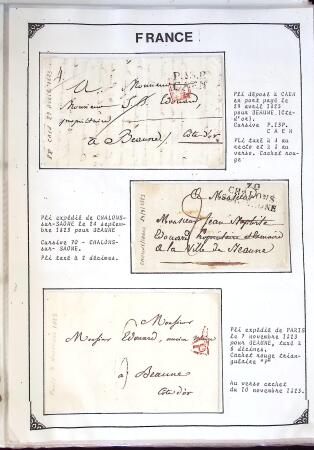 FRANCE
A Monsieur
P.13.P.
CAEN
Monsieur J.B. Edouard,
propriétaire
à Beaune
Côte d'or
Pli déposé à CAEN
en port payé le
29 avril 1823
pour BEAUNE.(Cte-
d'or).
Cursive P.13P.
CAEN
Pli taxé à 4 au
recto et à 1 au
verso. Cachet rou-
ge
Pli expédié de CHALONS-
sur-SAONE le 24 septem-
bre 1823 pour BEAUNE
Cursive 70 - CHALONS-
sur-SAONE.
Pli taxé à 2 décimes.
A Monsieur
70
CHALONS
SAONE
Monsieur Jean Baptiste
Edouard propriétaire
à la Ville de Beaune
A Monsieur
Monsieur Edouard, ancien
à Beaune
Côte d'or
Pli expédié de PARIS
le 7 novembre 1823
pour BEAUNE, taxé à
6 décimes.
Cachet rouge trian-
gulaire "P"
Au verso cachet
du 10 novembre 1823.